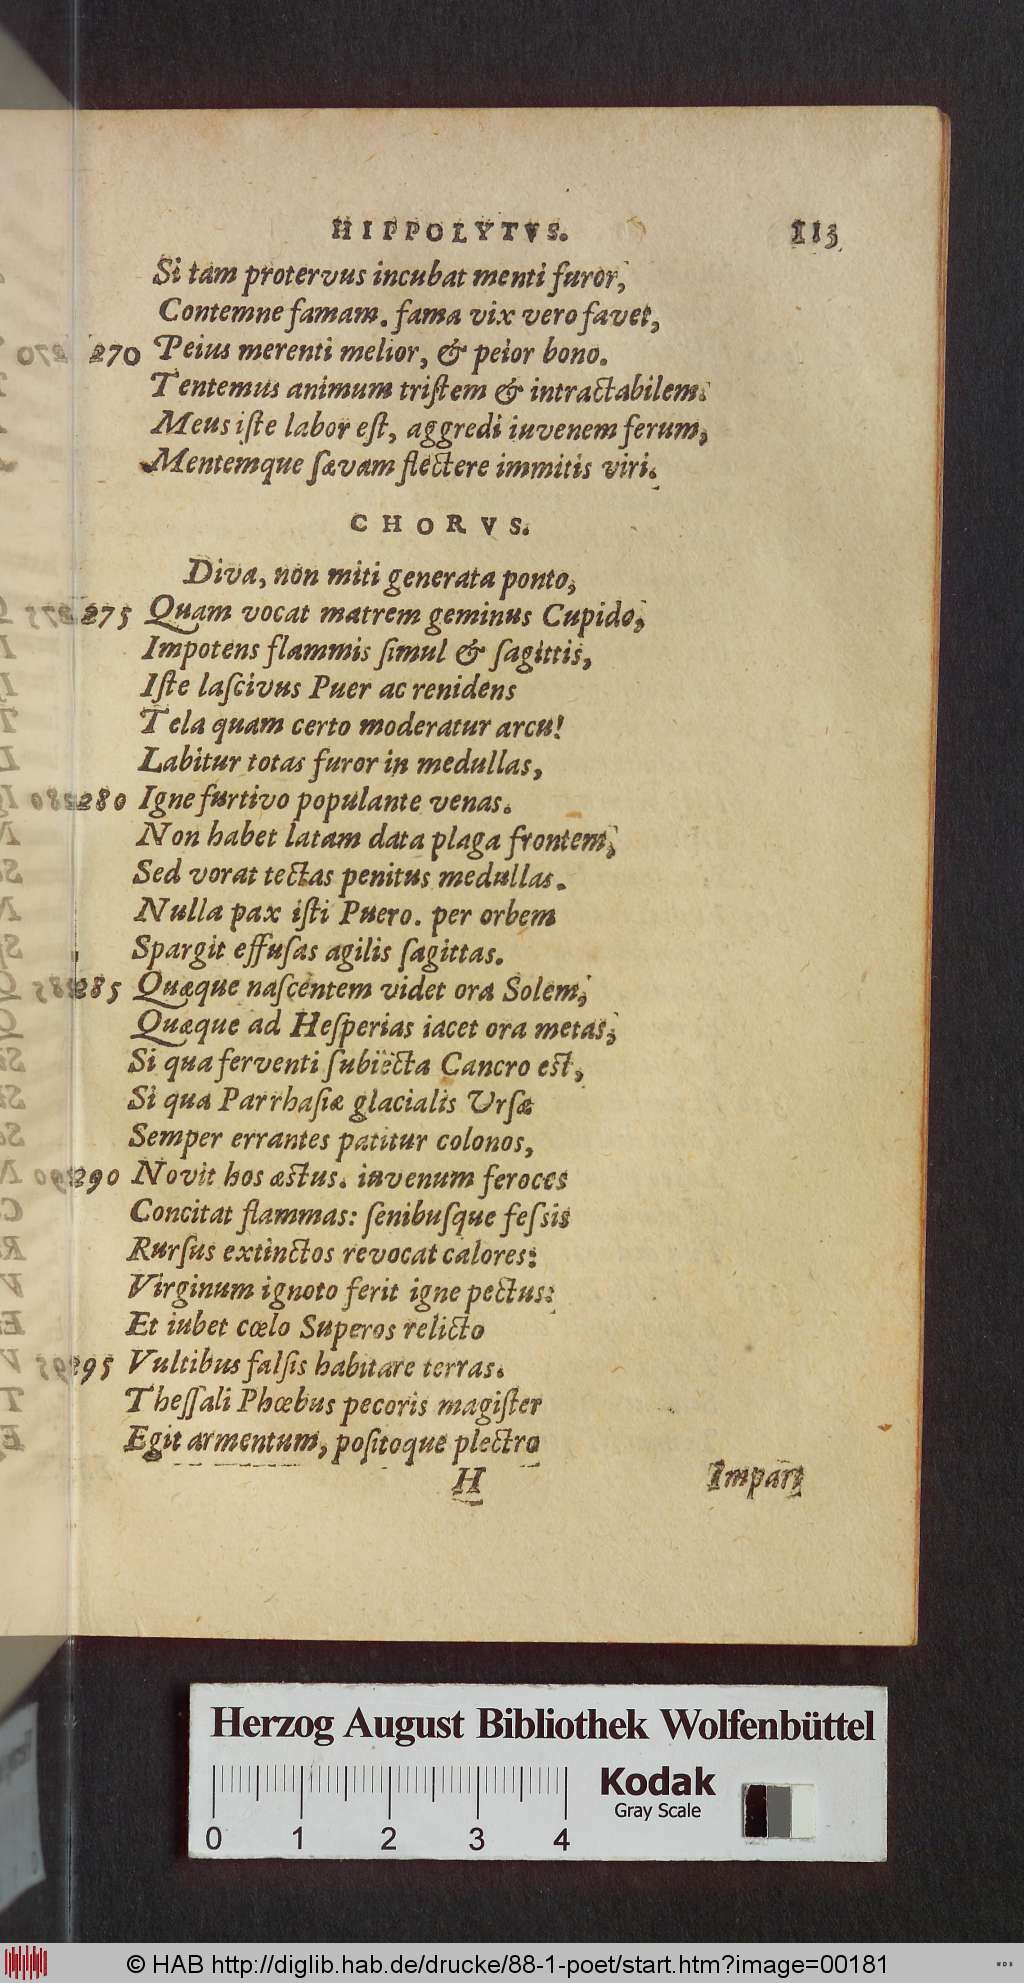 HIPPOLYTVS. 113
Si tam protervus incubat menti furor,
Contemne famam. fama vix vero favet,
270 Peius merenti melior, & peior bono.
Tentemus animum triſtem & intractabilem.
Meus iſte labor eſt, aggredi iuvenem ferum,
Mentemque ſævam flectere immitis viri.
CHORVS.
Diva, non miti generata ponto,
275 Quam vocat matrem geminus Cupido,
Impotens flammis ſimul & ſagittis,
Iſte laſcivus Puer ac renidens
Tela quam certo moderatur arcu!
Labitur totas furor in medullas,
280 Igne furtivo populante venas.
Non habet latam data plaga frontem,
Sed vorat tectas penitus medullas.
Nulla pax iſti Puero. per orbem
Spargit effuſas agilis ſagittas.
285 Quæque naſcentem videt ora Solem,
Quæque ad Heſperias iacet ora metas,
Si qua ferventi ſubiecta Cancro est,
Si qua Parrhaſiæ glacialis Urſæ
Semper errantes patitur colonos,
290 Novit hos æstus. iuvenum feroces
Concitat flammas: ſenibuſque feſsis
Rurſus extinctos revocat calores:
Virginum ignoto ferit igne pectus:
Et iubet cœlo Superos relicto
295 Vultibus falſis habitare terras.
Theſſali Phœbus pecoris magiſter
Egit armentum, poſitoque plectro
H Impari
Herzog August Bibliothek Wolfenbüttel
Kodak
Gray Scale
0 1 2 3 4
© HAB http://diglib.hab.de/drucke/88-1-poet/start.htm?image=00181